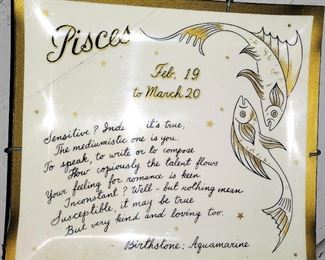 Pisces
Feb. 19
to March 20
Sensitive? Inde it's true,
The mediumistic one is you.
To speak, to write or to compose
How copiously the talent flows
Your feeling for romance is keen
Inconstant? Well - but nothing mean
Susceptible, it may be true
But very kind and loving too.
Birthstone: Aquamarine